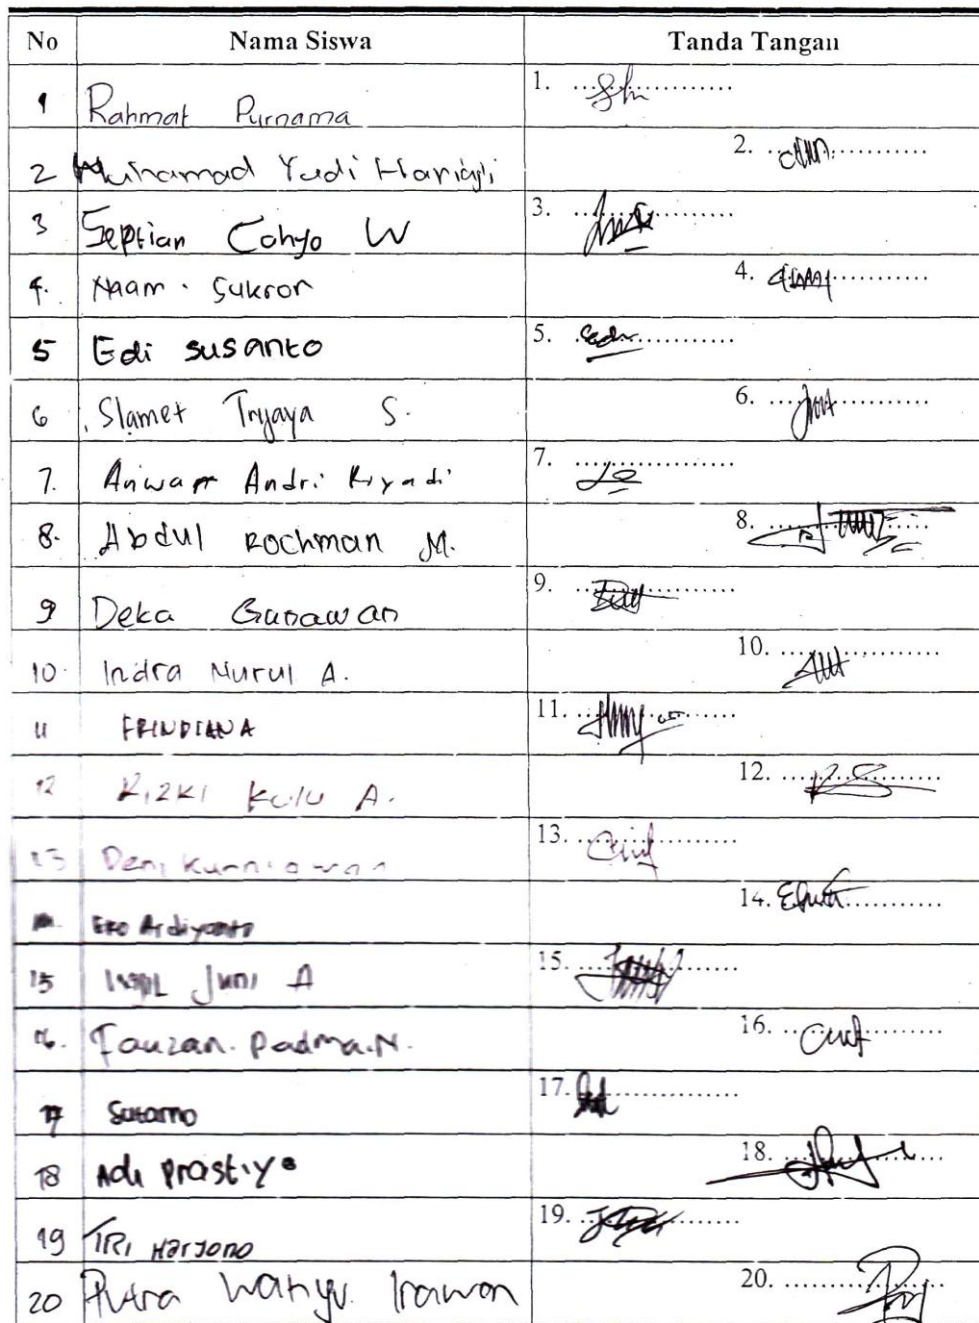 No Nama Siswa Tanda Tangan
1 Rahmat Purnama 1. ..............
2 Muhamad Yudi 2. ..............
3 Septian Cahyo W 3. ..............
4. Naam. Sukron 4. ..............
5 Edi Susanto 5. ..............
6 Slamet Tryjaya S. 6. ..............
7. Anwar Andri Riyadi 7. ..............
8. Abdul Rochman M. 8. ..............
9 Deka Gunawan 9. ..............
10. Indra Nurul A. 10. ..............
11 11. ..............
12 Rizki A. 12. ..............
13 Deni Kurniawan 13. ..............
Eko Ardiyanto 14. ..............
15 Juni A 15. ..............
16. Fauzan. Padma.N. 16. ..............
17 Sutarno 17. ..............
18 Adi Prastiyo 18. ..............
19 TRI Harjono 19. ..............
20 Putra Wahyu Irawan 20. ..............